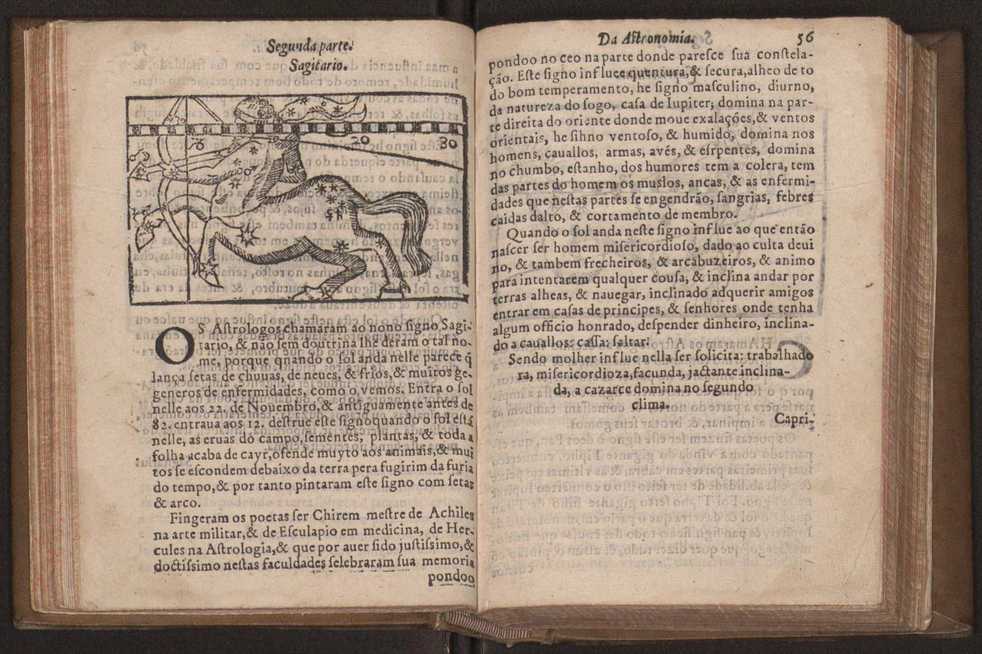 Segunda parte.
Sagitario.
20
30
OS Astrologos chamaram ao nono signo Sagi-
tario, & não sem doutrina lhe deram o tal no-
me, porque quando o sol anda nelle parece q̃
lança setas de chuuas, de neues, & frios, & muitos ge-
generos de enfermidades, como o vemos. Entra o sol
nelle aos 22. de Nouembro, & antiguamente antes de
82. entraua aos 12. destrue este signo quando o sol està
nelle, as eruas do campo, sementes, plantas, & toda a
folha acaba de cayr, ofende muyto aos animais, & mui
tos se escondem debaixo da terra pera fugirim da furia
do tempo, & por tanto pintaram este signo com setas
& arco.
Fingeram os poetas ser Chirem mestre de Achiles
na arte militar, & de Esculapio em medicina, de Her-
cules na Astrologia, & que por auer sido justissimo, &
doctissimo nestas faculdades selebraram sua memoria
pondoo
Da Astronomia. 56
pondoo no ceo na parte donde paresce sua constela-
ção. Este signo influe quentura, & secura, alheo de to
do bom temperamento, he signo masculino, diurno,
da natureza do fogo, casa de Iupiter; domina na par-
te direita do oriente donde moue exalações, & ventos
orientais, he sihno ventoso, & humido, domina nos
homens, cauallos, armas, avés, & esrpentes, domina
no chumbo, estanho, dos humores tem a colera, tem
das partes do homem os muslos, ancas, & as enfermi-
dades que nestas partes se engendrão, sangrias, febres
caidas dalto, & cortamento de membro.
Quando o sol anda neste signo influe ao que então
nascer ser homem misericordioso, dado ao culta deui
no, & tambem frecheiros, & arcabuzeiros, & animo
para intentarem qualquer cousa, & inclina andar por
terras alheas, & nauegar, inclinado adquerir amigos
entrar em casas de principes, & senhores onde tenha
algum officio honrado, despender dinheiro, inclina-
do a cauallos: cassa: saltar:
Sendo molher influe nella ser solicita: trabalhado
ra, misericordioza, facunda, jactante inclina-
da, a cazarce domina no segundo
clima.
Capri-